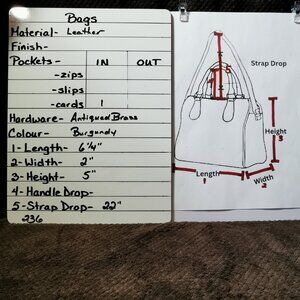 Bags
Material- Leather
Finish-
Pockets- IN OUT
-zips
-slips
-cards 1
Hardware- Antiqued Brass
Colour- Burgundy
1-Length- 6¼"
2-Width- 2"
3-Height- 5"
4-Handle Drop-
5-Strap Drop- 22"
236
Strap Drop
4
5
Height
3
Length
1
Width
2